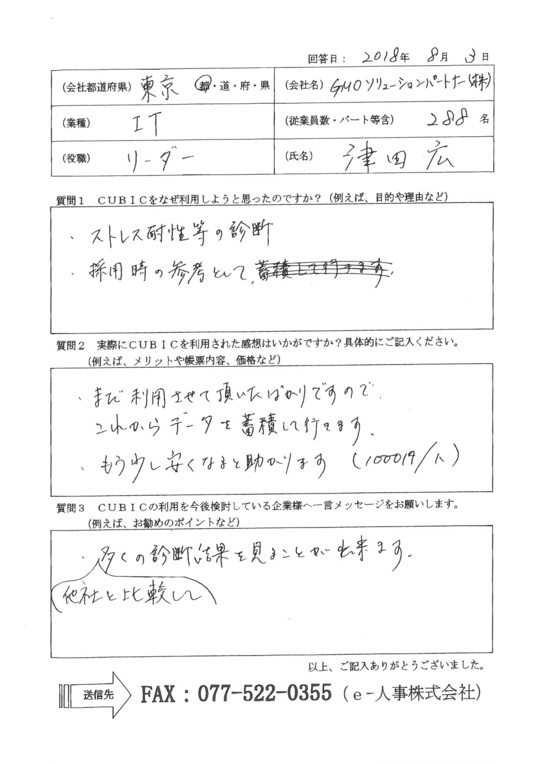 回答日： 2018年 8月 3日
(会社都道府県) 東京 都・道・府・県 (会社名) GMOソリューションパートナー(株)
(業種) IT (従業員数・パート等含) 288 名
(役職) リーダー (氏名) 津田 広
質問１　ＣＵＢＩＣをなぜ利用しようと思ったのですか？（例えば、目的や理由など）
・ストレス耐性等の診断
・採用時の参考として、蓄積して行きます。
質問２　実際にＣＵＢＩＣを利用された感想はいかがですか？具体的にご記入ください。
（例えば、メリットや帳票内容、価格など）
・まだ利用させて頂いたばかりですので、
これからデータを蓄積して行きます。
・もう少し安くなると助かります (1000円/人)
質問３　ＣＵＢＩＣの利用を今後検討している企業様へ一言メッセージをお願いします。
（例えば、お勧めのポイントなど）
・多くの診断結果を見ることが出来ます。
他社と比較して
以上、ご記入ありがとうございました。
送信先 FAX：077-522-0355（ｅ-人事株式会社）